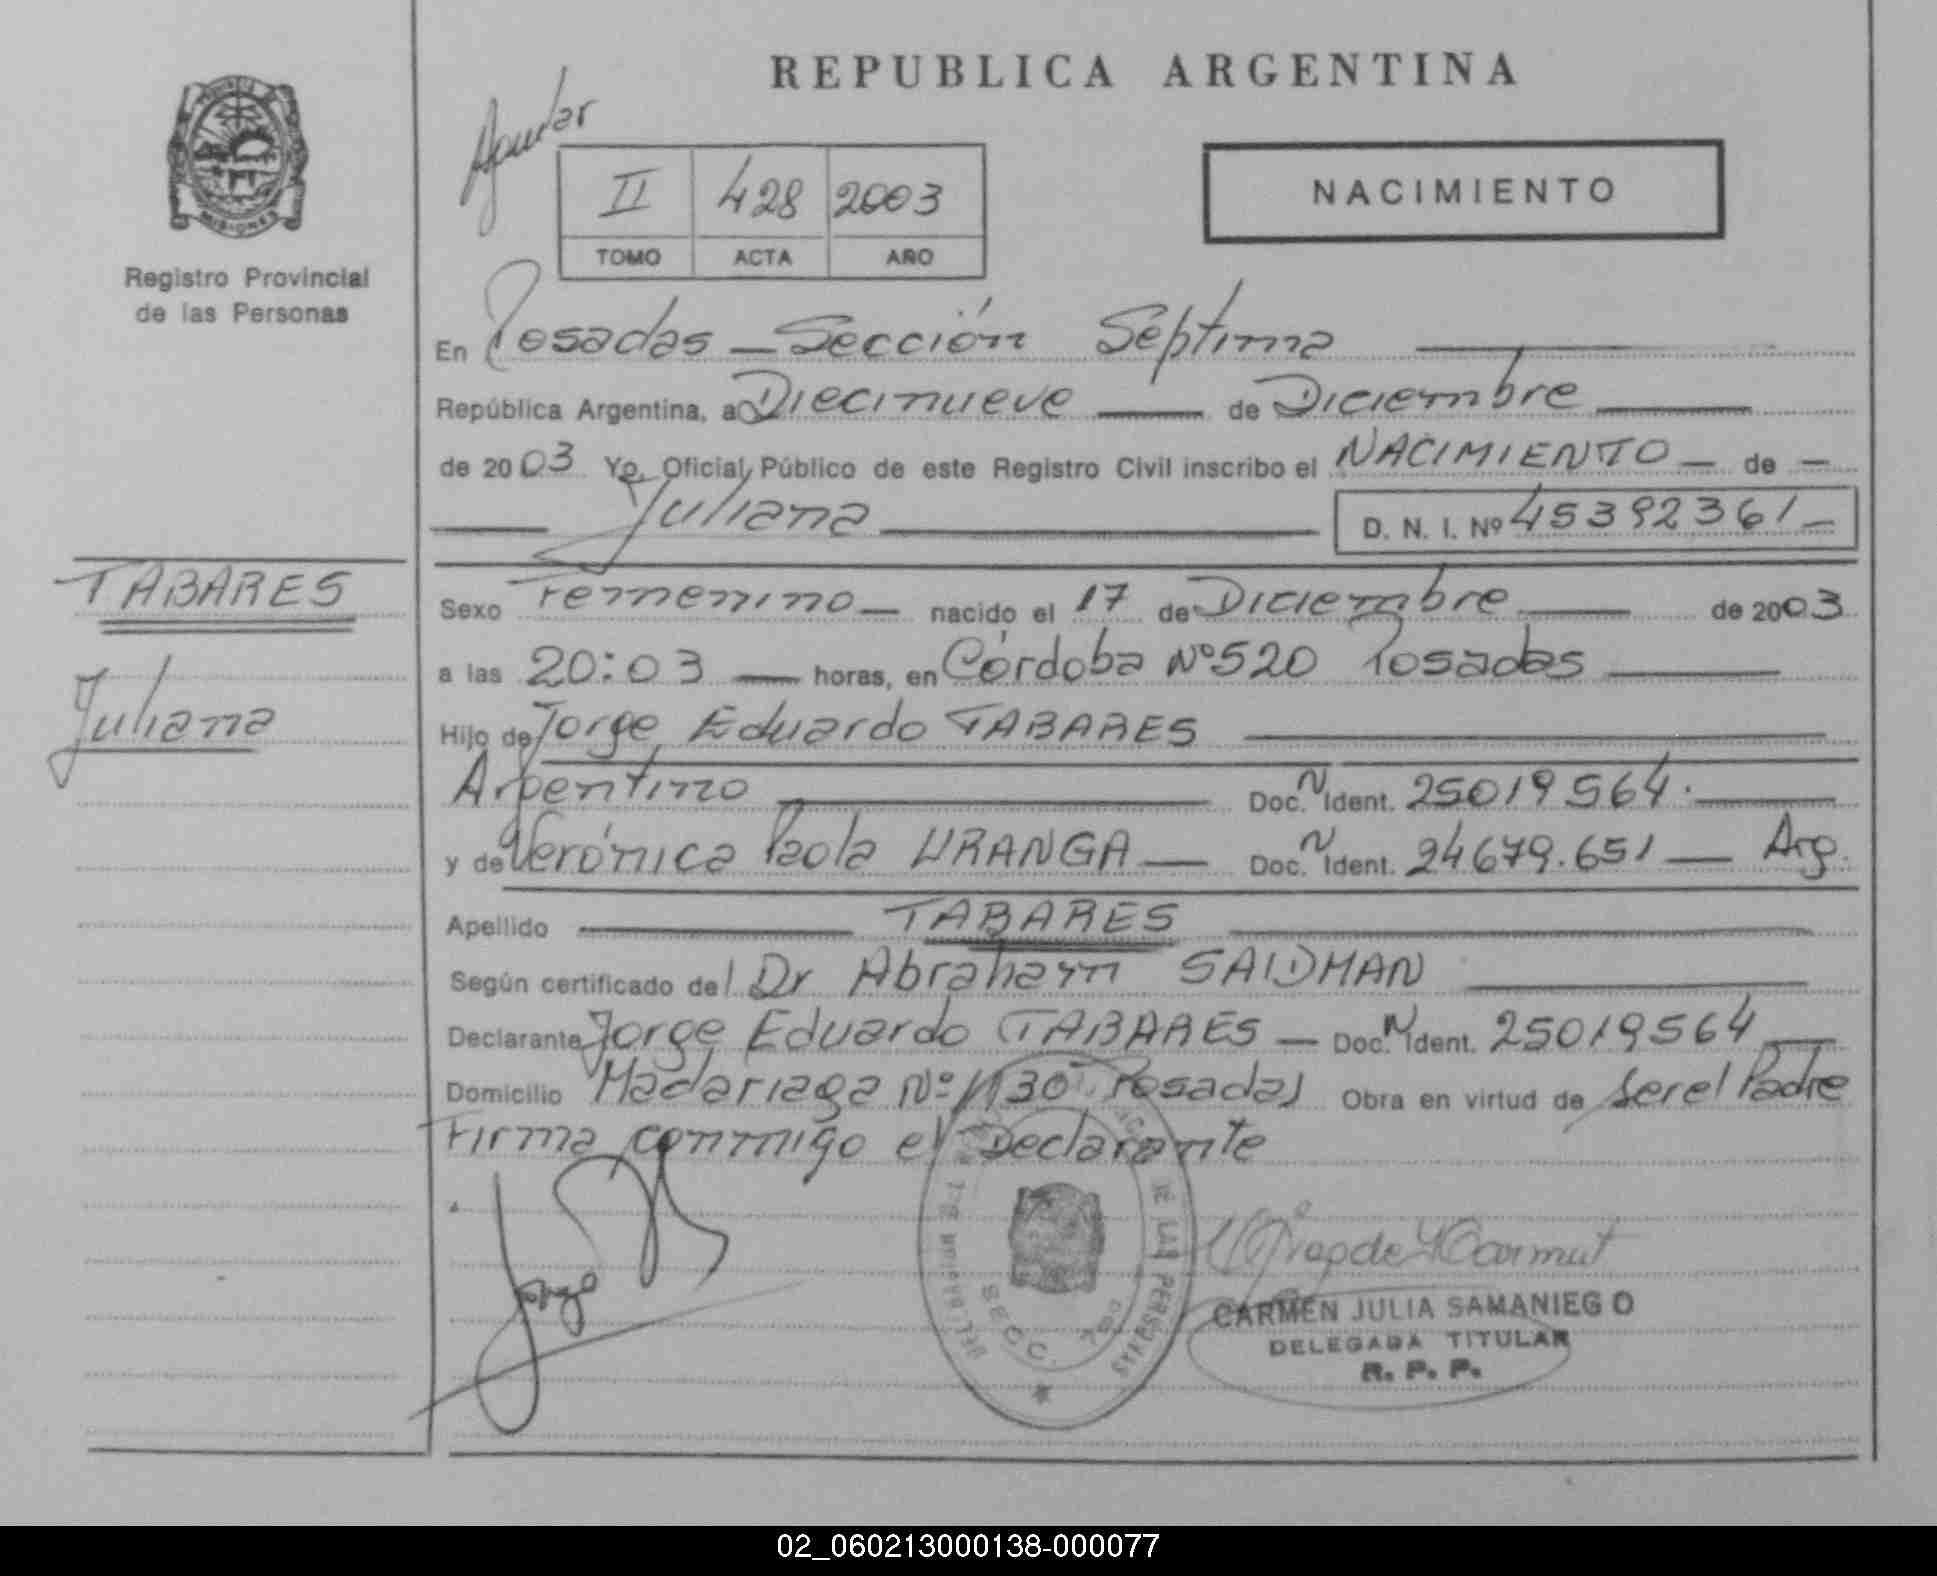 REPUBLICA ARGENTINA
PROVINCIA DE
MISIONES
Registro Provincial
de las Personas
II 428 2003
TOMO ACTA AÑO
NACIMIENTO
En Posadas — Sección Séptima
República Argentina, a Diecinueve — de Diciembre
de 2003 Yo, Oficial Público de este Registro Civil inscribo el NACIMIENTO — de —
Juliana D. N. I. Nº 45392361 —
TABARES
Juliana
Sexo Femenino — nacido el 17 de Diciembre — de 2003
a las 20:03 — horas, en Córdoba Nº 520 Posadas
Hijo de Jorge Eduardo TABARES
Argentino Doc. N Ident. 25019564.
y de Verónica Paola URANGA — Doc. N Ident. 24679.651 — Arg.
Apellido TABARES
Según certificado del Dr Abraham SAIDMAN
Declarante Jorge Eduardo TABARES — Doc. N Ident. 25019564
Domicilio Madariaga Nº 1130 Posadas Obra en virtud de ser el Padre
Firma conmigo el Declarante
Jorge
DE LAS PERSONAS
SECC. 7
CARMEN JULIA SAMANIEGO
DELEGADA TITULAR
R. P. P.
02_060213000138-000077